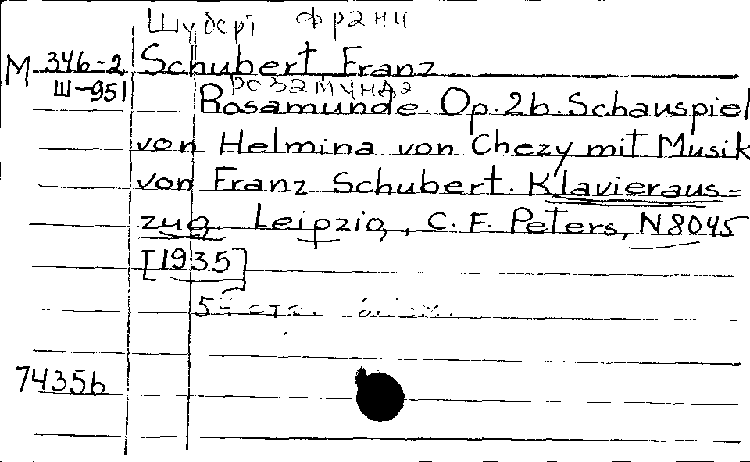 Шуберт Франц
М 346-2 Schubert Franz
Ш-951 Розамунда
Rosamunde Op. 26. Schauspiel
von Helmina von Chezy mit Musik
von Franz Schubert. Klavieraus-
zug. Leipzig, C. F. Peters, N 8045
[1935]
стр.
74356